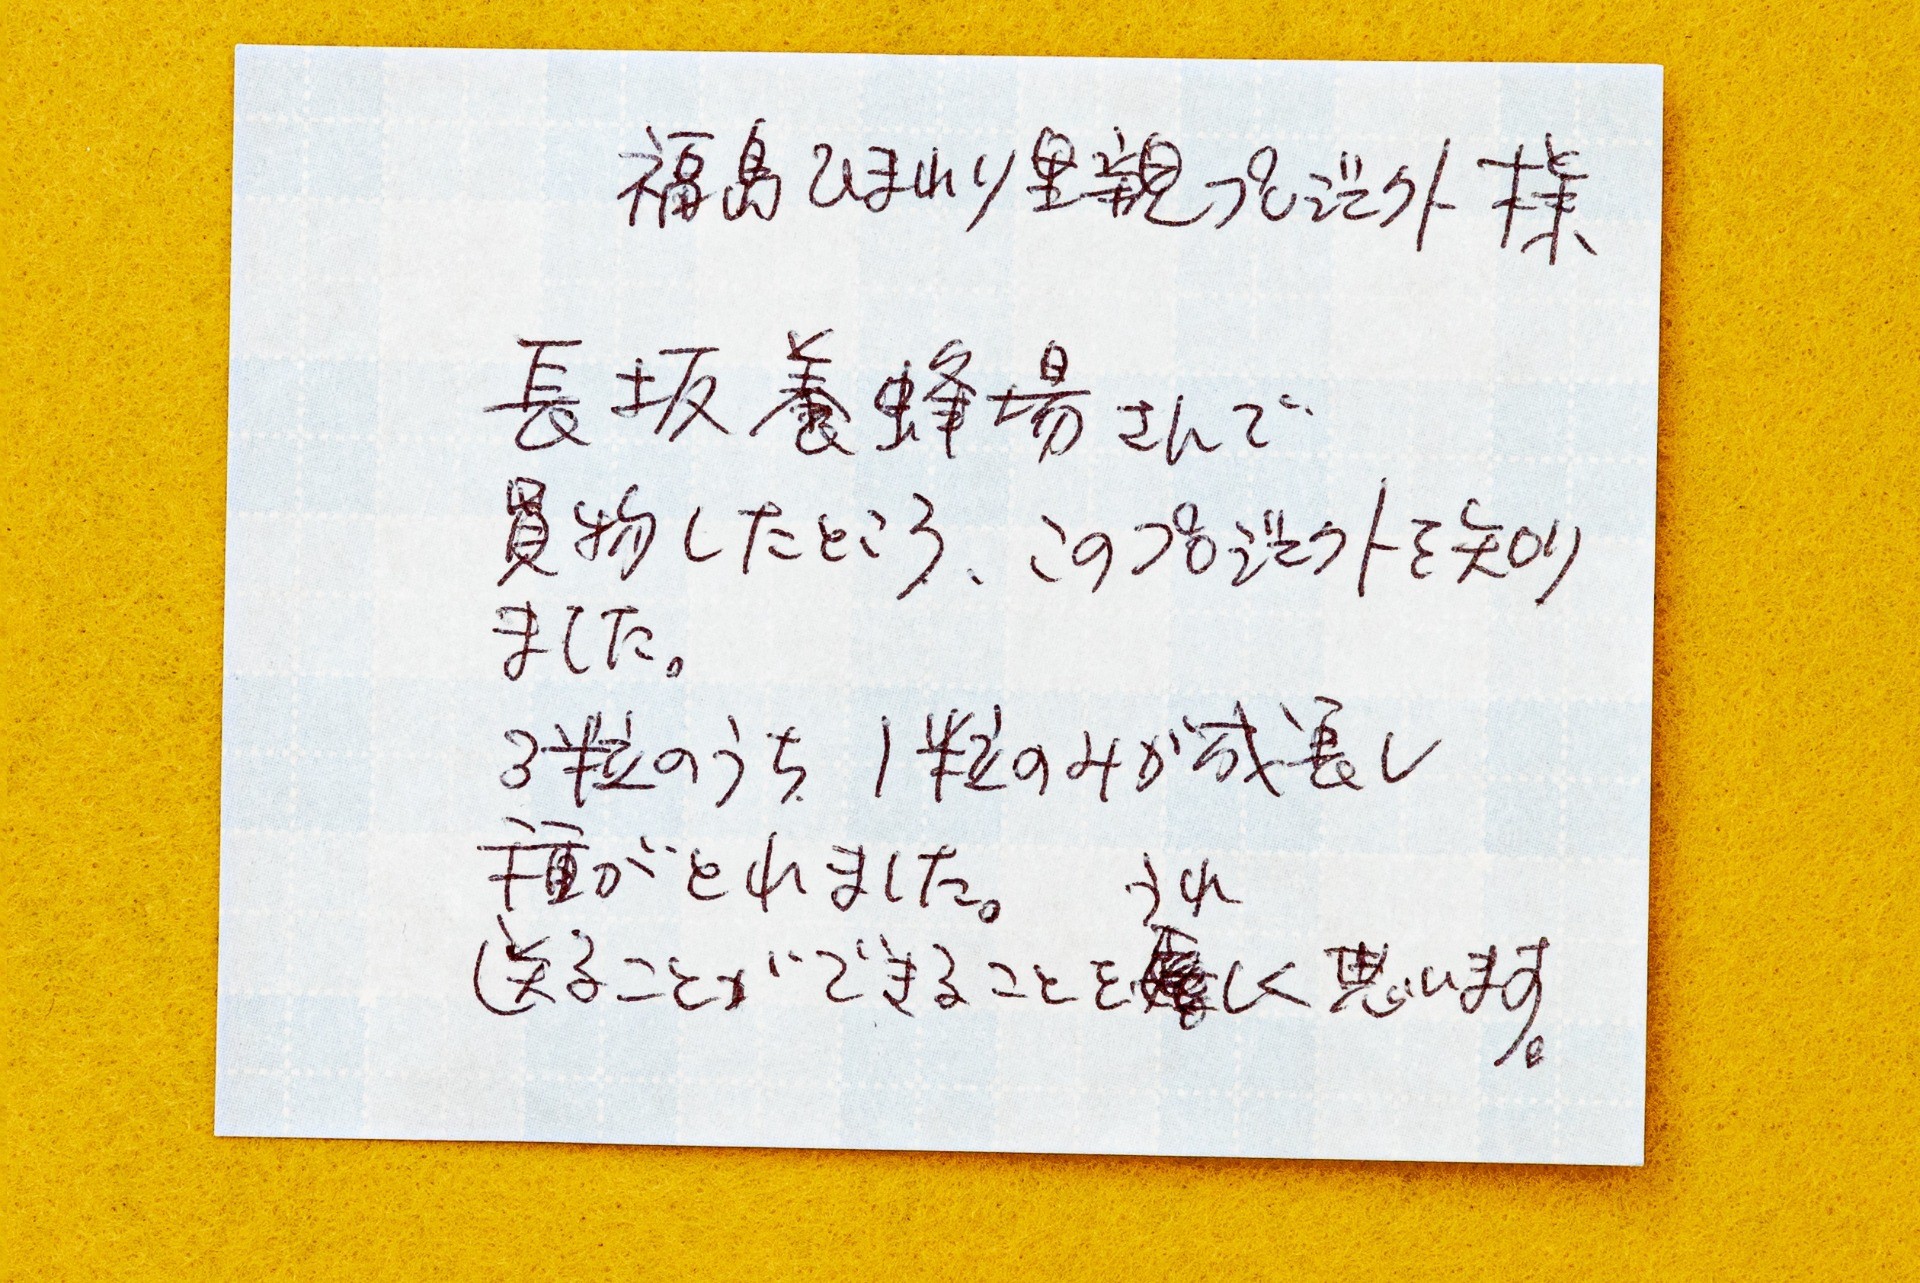 福島ひまわり里親プロジェクト様
長坂養蜂場さんで
買物したところ、このプロジェクトを知り
ました。
3粒のうち 1粒のみが成長し
種がとれました。
うれ
送ることができることをしく思います。